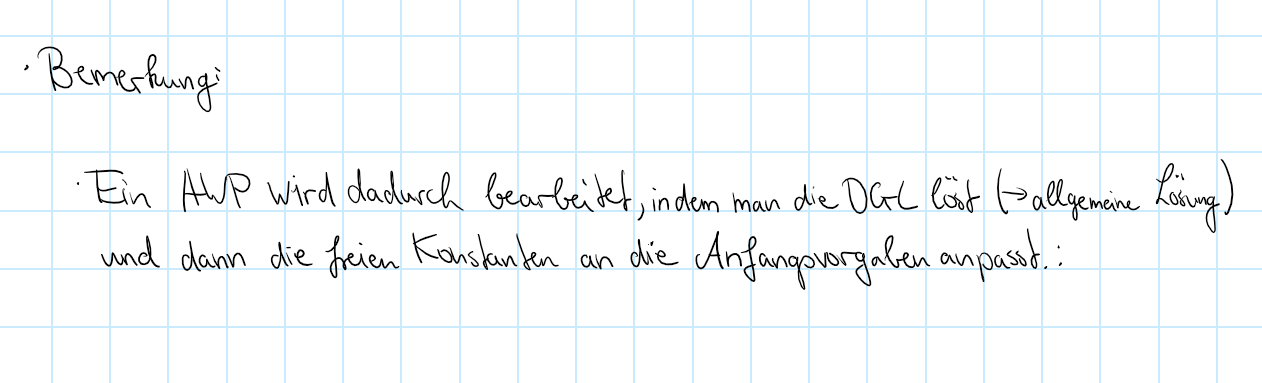 · Bemerkung:
· Ein AWP wird dadurch bearbeitet, indem man die DGL löst (→ allgemeine Lösung)
und dann die freien Konstanten an die Anfangsvorgaben anpasst. :